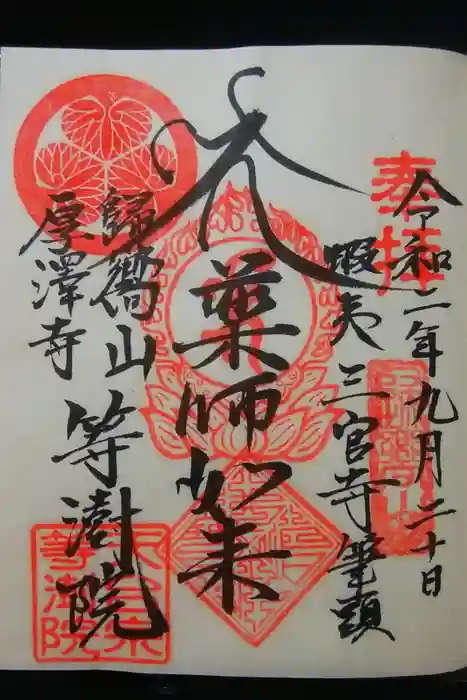 奉拝
令和二年九月二十日
蝦夷三官寺筆頭
薬師如来
歸嚮山等澍院
厚澤寺